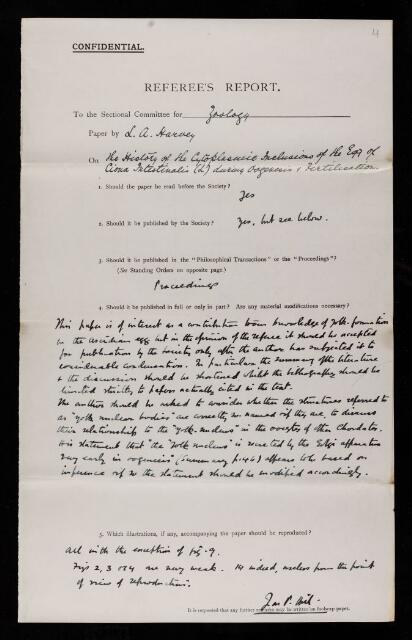 4
CONFIDENTIAL.
REFEREE'S REPORT.
To the Sectional Committee for Zoology
Paper by L. A. Harvey
On The History of the Cytoplasmic Inclusions of the Egg of
Ciona Intestinalis (L) during Oogenesis & Fertilisation.
1. Should the paper be read before the Society?
Yes
2. Should it be published by the Society? Yes, but see below.
3. Should it be published in the "Philosophical Transactions" or the "Proceedings"?
(See Standing Orders on opposite page.)
Proceedings
4. Should it be published in full or only in part? Are any material modifications necessary?
This paper is of interest as a contribution to our knowledge of yolk-formation
in the ascidian egg but in the opinion of the referee it should be accepted
for publication by the Society only after the author has subjected it to
considerable condensation. In particular the summary of the literature
& the discussion should be shortened whilst the bibliography should be
limited strictly to papers actually cited in the text.
The author should be asked to consider whether the structures referred to
as "yolk nucleus bodies" are correctly so named & if they are, to discuss
their relationships to the "yolk-nucleus" in the oocytes of other Chordates.
His statement that "the yolk nucleus" is secreted by the Golgi apparatus
very early in oogenesis" (summary p. 46) appears to be based on
inference & if so the statement should be modified accordingly.
5. Which illustrations, if any, accompanying the paper should be reproduced?
All with the exception of fig. 9.
Figs 2, 3 & 4 are very weak. 14 indeed, useless from the point
of view of reproduction.
Jas P. Hill
It is requested that any further remarks may be written on foolscap paper.